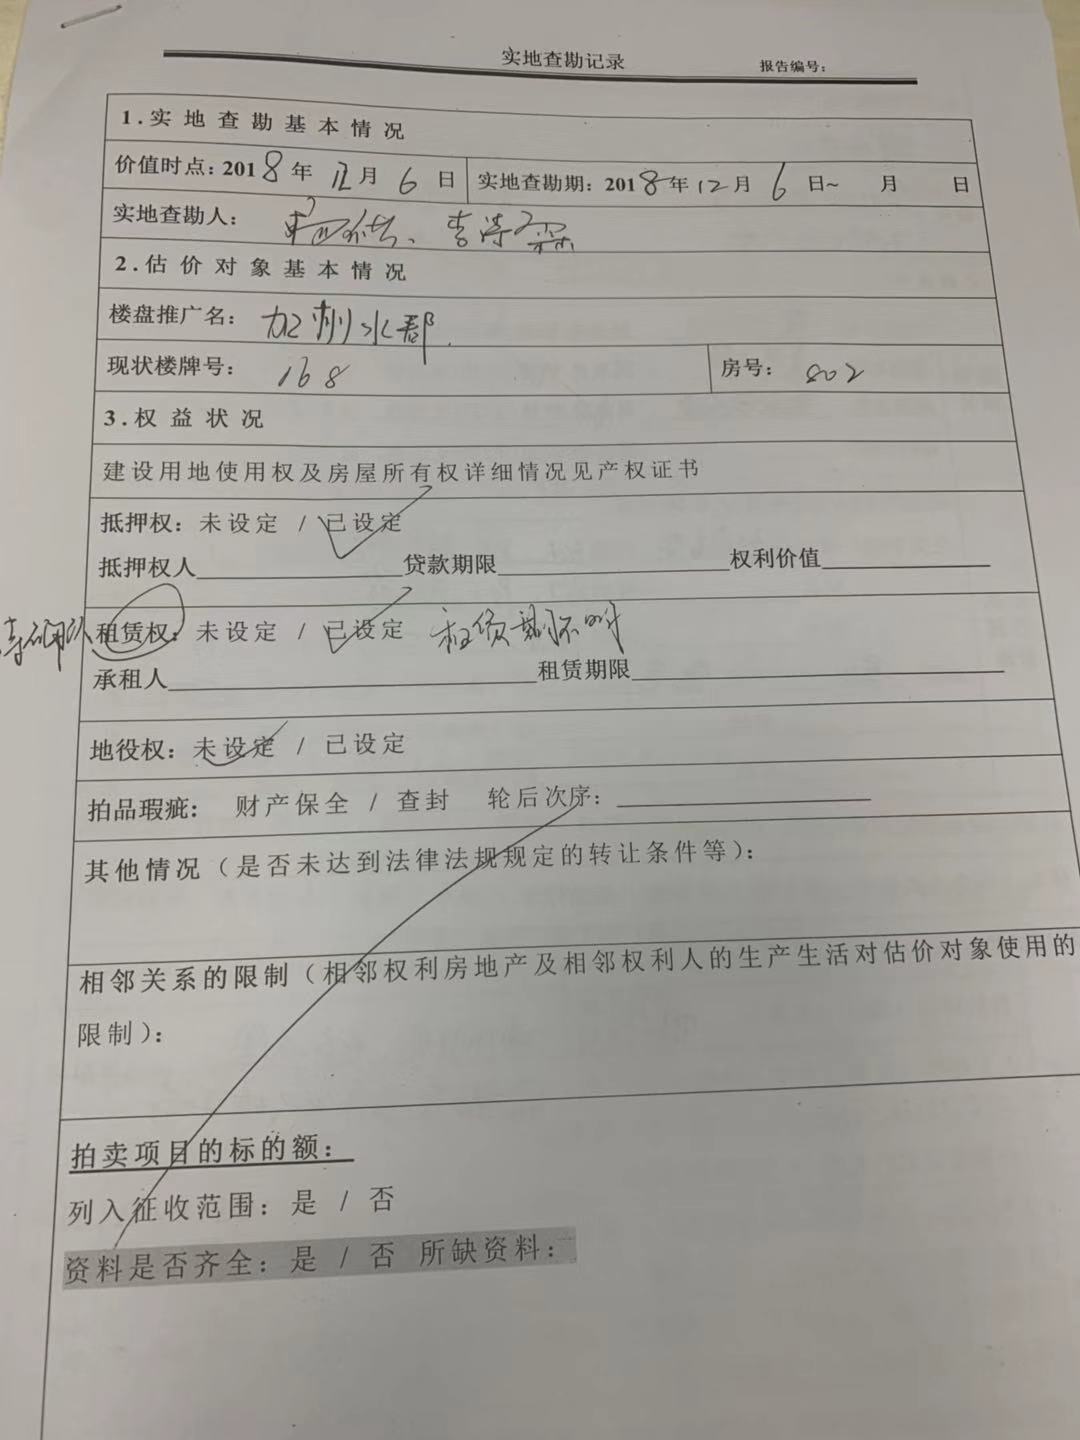 实地查勘记录 报告编号：
1.实地查勘基本情况
价值时点：2018年12月6日 实地查勘期：2018年12月6日~ 月 日
实地查勘人：
2.估价对象基本情况
楼盘推广名：加州水郡
现状楼牌号：168 房号：802
3.权益状况
建设用地使用权及房屋所有权详细情况见产权证书
抵押权：未设定 / 已设定
抵押权人 贷款期限 权利价值
租赁权：未设定 / 已设定 租赁期不明
承租人 租赁期限
地役权：未设定 / 已设定
拍品瑕疵： 财产保全 / 查封 轮后次序：
其他情况（是否未达到法律法规规定的转让条件等）：
相邻关系的限制（相邻权利房地产及相邻权利人的生产生活对估价对象使用的
限制）：
拍卖项目的标的额：
列入征收范围：是 / 否
资料是否齐全：是 / 否 所缺资料：